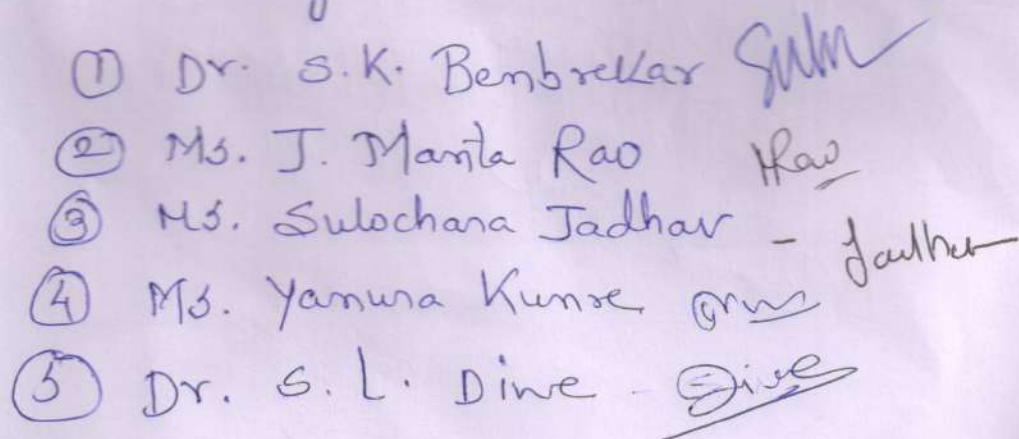 ① Dr. S.K. Bembrekar
② Ms. J. Manta Rao Rao
③ Ms. Sulochana Jadhav - Jadhav
④ Ms. Yamuna Kunre
⑤ Dr. S. L. Dive - Dive